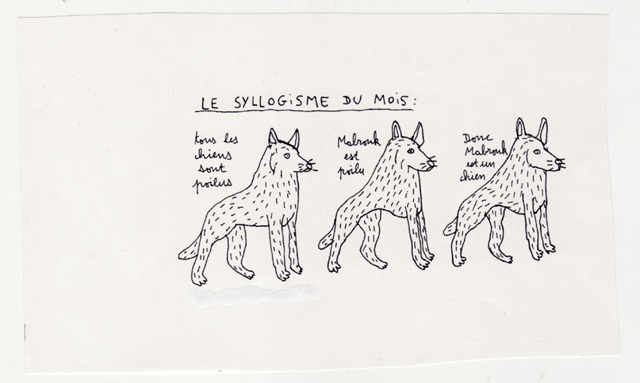 LE SYLLOGISME DU MOIS:
tous les
chiens
sont
poilus
Mabrouk
est
poilu
Donc
Mabrouk
est un
chien